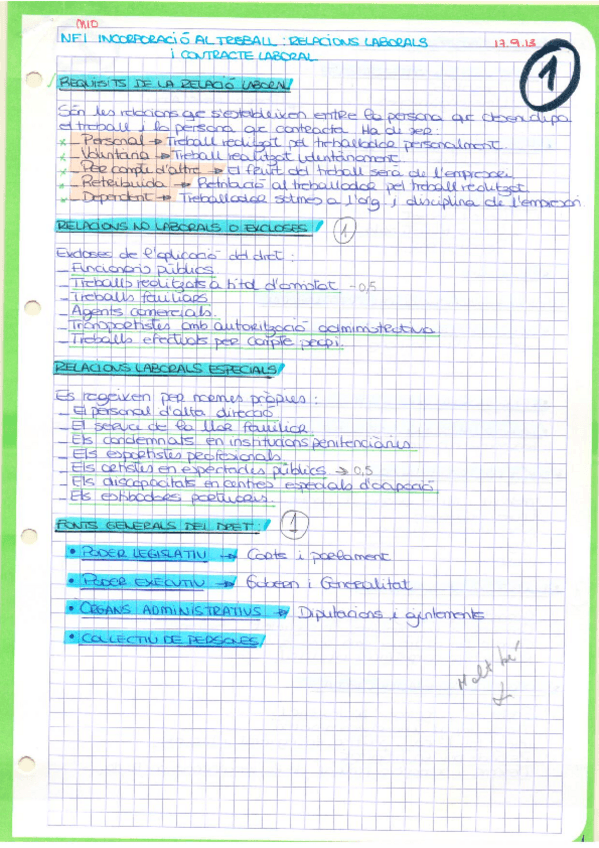 M10
NF1 INCORPORACIÓ AL TREBALL: RELACIONS LABORALS 17.9.13
i CONTRACTE LABORAL
1
REQUISITS DE LA RELACIÓ LABORAL
Són les relacions que s'estableixen entre la persona que desenvolupa
el treball i la persona que contracta. Ha de ser:
* _ Personal → Treball realitzat pel treballador personalment.
* _ Voluntària → Treball realitzat voluntàriament.
* _ Per compte d'altre → el fruit del treball serà de l'empresari
* _ Retribuïda → Retribució al treballador pel treball realitzat.
* _ Dependent → Treballador sotmès a l'org. i disciplina de l'empresari.
RELACIONS NO LABORALS O EXCLOSES 1
Excloses de l'aplicació del dret:
_ Funcionaris públics
_ Treballs realitzats a títol d'amistat - 0,5
_ Treballs familiars
_ Agents comercials.
_ Transportistes amb autorització administrativa
_ Treballs efectuats per compte propi.
RELACIONS LABORALS ESPECIALS
Es regeixen per normes pròpies:
_ El personal d'alta direcció
_ El servei de la llar familiar.
_ Els condemnats en institucions penitenciàries
_ Els esportistes professionals.
_ Els artistes en espectacles públics → 0,5
_ Els discapacitats en centres especials d'ocupació
_ Els estibadors portuaris.
FONTS GENERALS DEL DRET: 1
• PODER LEGISLATIU → Corts i parlament
• PODER EXECUTIU → Govern i Generalitat
• ÒRGANS ADMINISTRATIUS → Diputacions i ajuntaments
• COL·LECTIU DE PERSONES
Molt bé